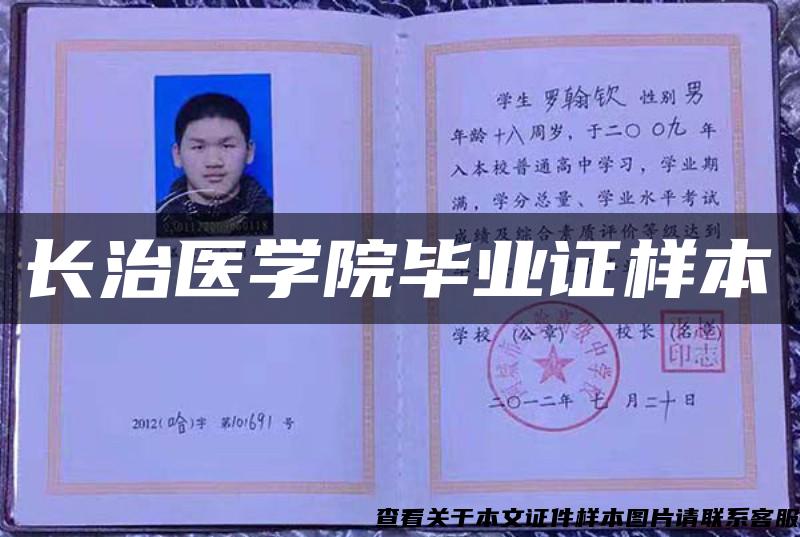 学生 罗翰钦 性别 男
年龄 十八 周岁，于二〇〇九 年
入本校普通高中学习，学业期
满，学分总量、学业水平考试
成绩及综合素质评价等级达到
长治医学院毕业证样本
学校 (公章) 校长 (名章)
二〇一二年 七 月二十日
2012(哈)字 第101691 号
查看关于本文证件样本图片请联系客服